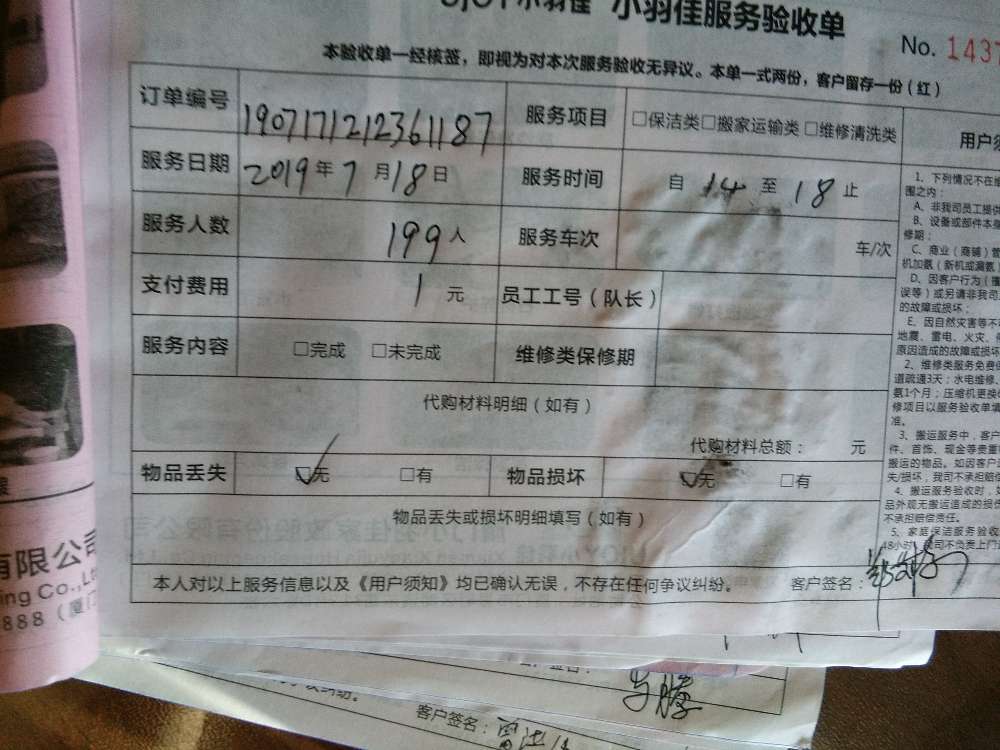 小羽佳服务验收单
No. 1437
本验收单一经核签，即视为对本次服务验收无异议。本单一式两份，客户留存一份（红）
订单编号 190717121236187 服务项目 □保洁类□搬家运输类□维修清洗类
服务日期 2019年7月18日 服务时间 自 14 至 18 止
服务人数 199人 服务车次 车/次
支付费用 1 元 员工工号（队长）
服务内容 □完成 □未完成 维修类保修期
代购材料明细（如有）
代购材料总额： 元
物品丢失 ☑无 □有 物品损坏 ☑无 □有
物品丢失或损坏明细填写（如有）
本人对以上服务信息以及《用户须知》均已确认无误，不存在任何争议纠纷。 客户签名：
用户须
1、下列情况不在维
围之内：
A、非我司员工提供
B、设备或部件本身
修期；
C、商业（商铺）营
机加氨（新机或漏氨
D、因客户行为（
误等）或另请非我司
的故障或损坏；
E、因自然灾害等不
地震、雷电、火灾、
原因造成的故障或损坏
2、维修类服务免费保
道疏通3天；水电维修、
氨1个月；压缩机更换
修项目以服务验收单填
准。
3、搬运服务中，客户
件、首饰、现金等贵重
搬运的物品。如因客户
失/损坏，我司不承担赔偿
4、搬运服务验收时，
品外观无搬运造成的损伤
不承担赔偿责任。
5、家庭保洁服务验收
48小时，我司不负责上门
有限公司
ing Co.,Lt
888（厦门
客户签名：
纠纷。
客户签名：